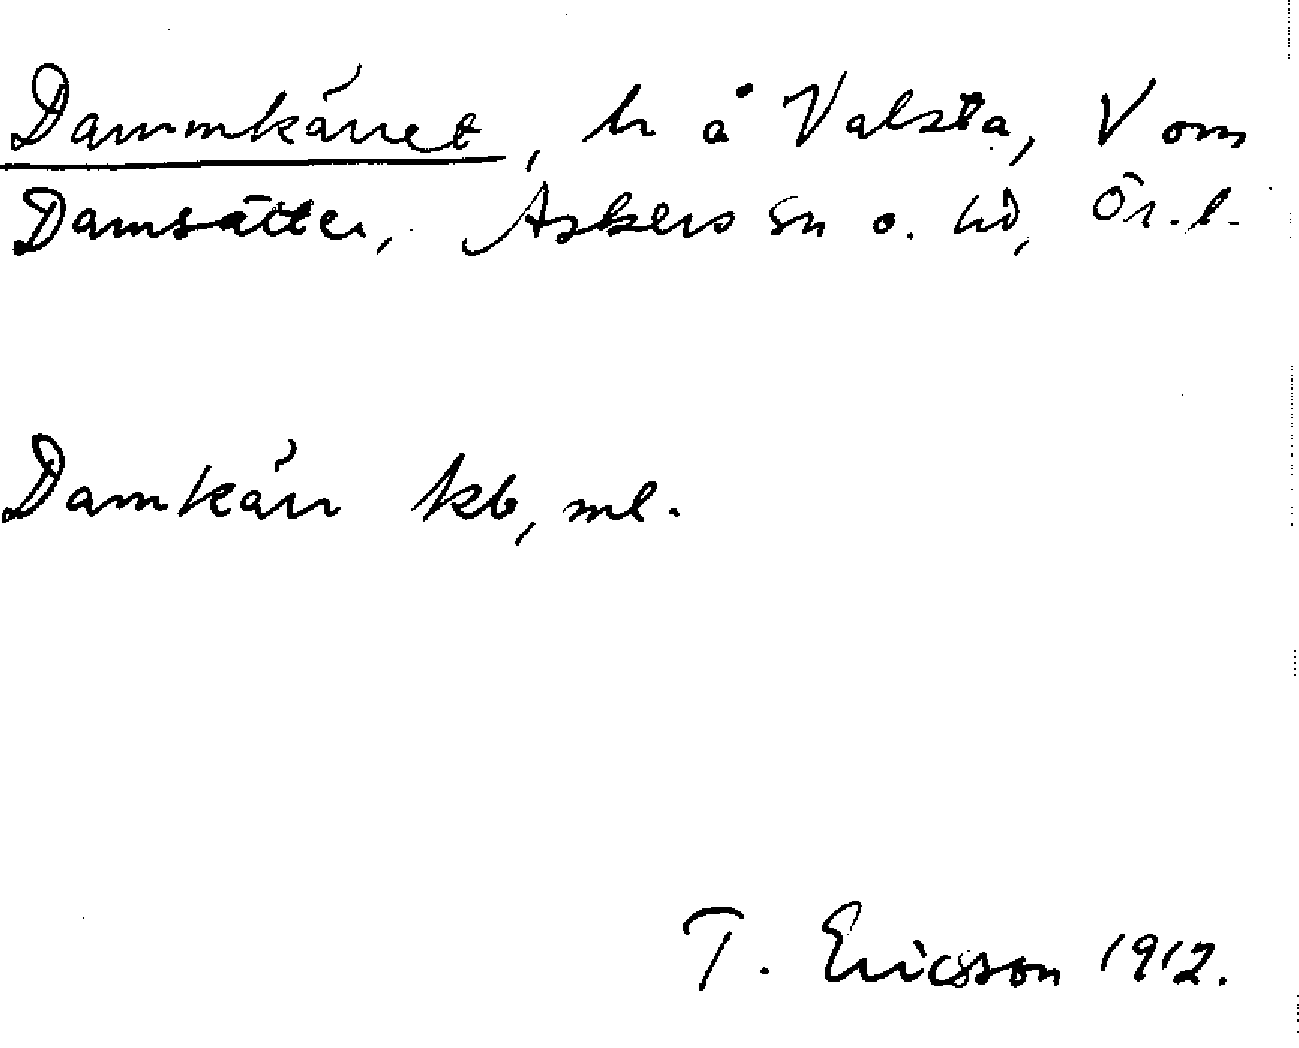 Dammkärret, lr å Valsta, V om
Damsätter, Askers sn o. hd, Ör. l.
Damkärr kb, ml.
T. Ericsson 1912.